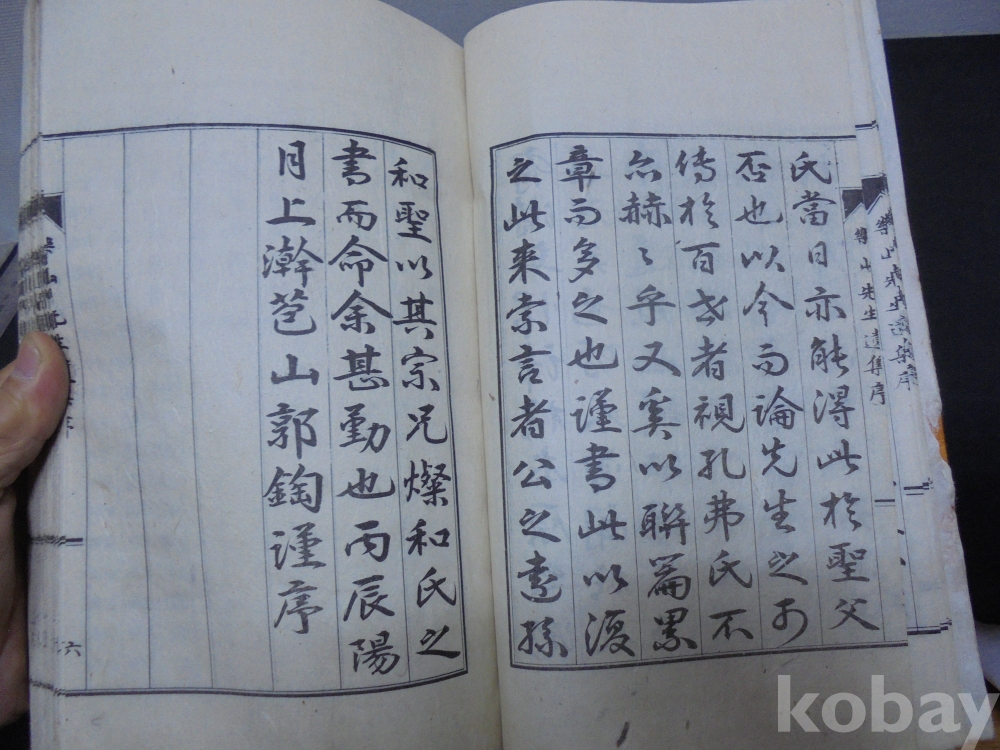 樂山先生遺集序
樂山先生遺集序
氏當日亦能得此於聖父
否也以今而論先生之可
傳於百世者視孔弗氏不
亦赫〻乎又奚以聯篇累
章而多之也謹書此以復
之此来索言者公之遠孫
和聖以其宗兄燦和氏之
書而命余甚勤也丙辰陽
月上澣苞山郭鋾謹序
六
kobay